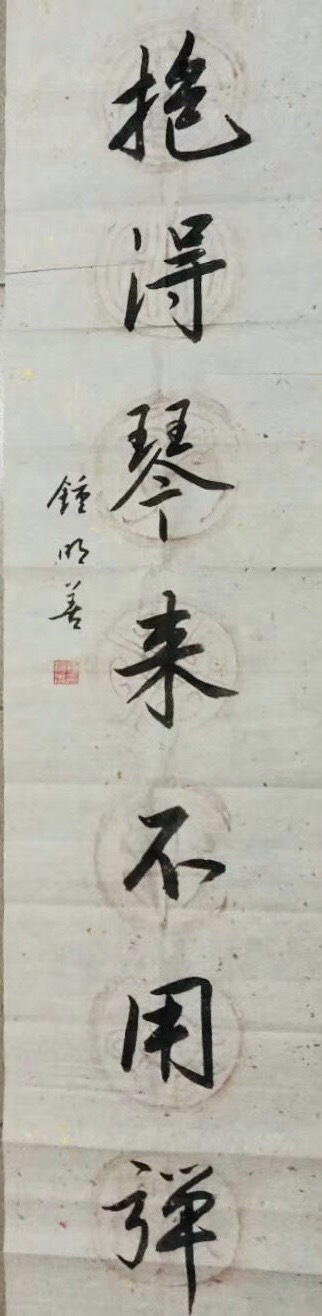 抱得琴来不用弹
鍾明善